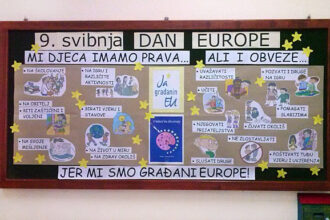 9. svibnja DAN EUROPE
MI DJECA IMAMO PRAVA... ALI I OBVEZE...
NA ŠKOLOVANJE
NA IGRU I
RAZLIČITE
AKTIVNOSTI
NA OBITELJ
BITI ZAŠTIĆENI I
VOLJENI
BIRATI VJERU I
STAVOVE
NA SVOJE
MIŠLJENJE
NA ŽIVOT U MIRU
NA ZDRAV OKOLIŠ
Ja
građanin
EU
UVAŽAVATI
RAZLIČITOSTI
POZVATI I DRUGE
NA IGRU
UČITI
POMAGATI
SLABIJIMA
NJEGOVATI
PRIJATELJSTVA
ČUVATI OKOLIŠ
NE ZLOSTAVLJATI
SLUŠATI DRUGE
POŠTIVATI TUĐU
VJERU I UVJERENJA
JER MI SMO GRAĐANI EUROPE!